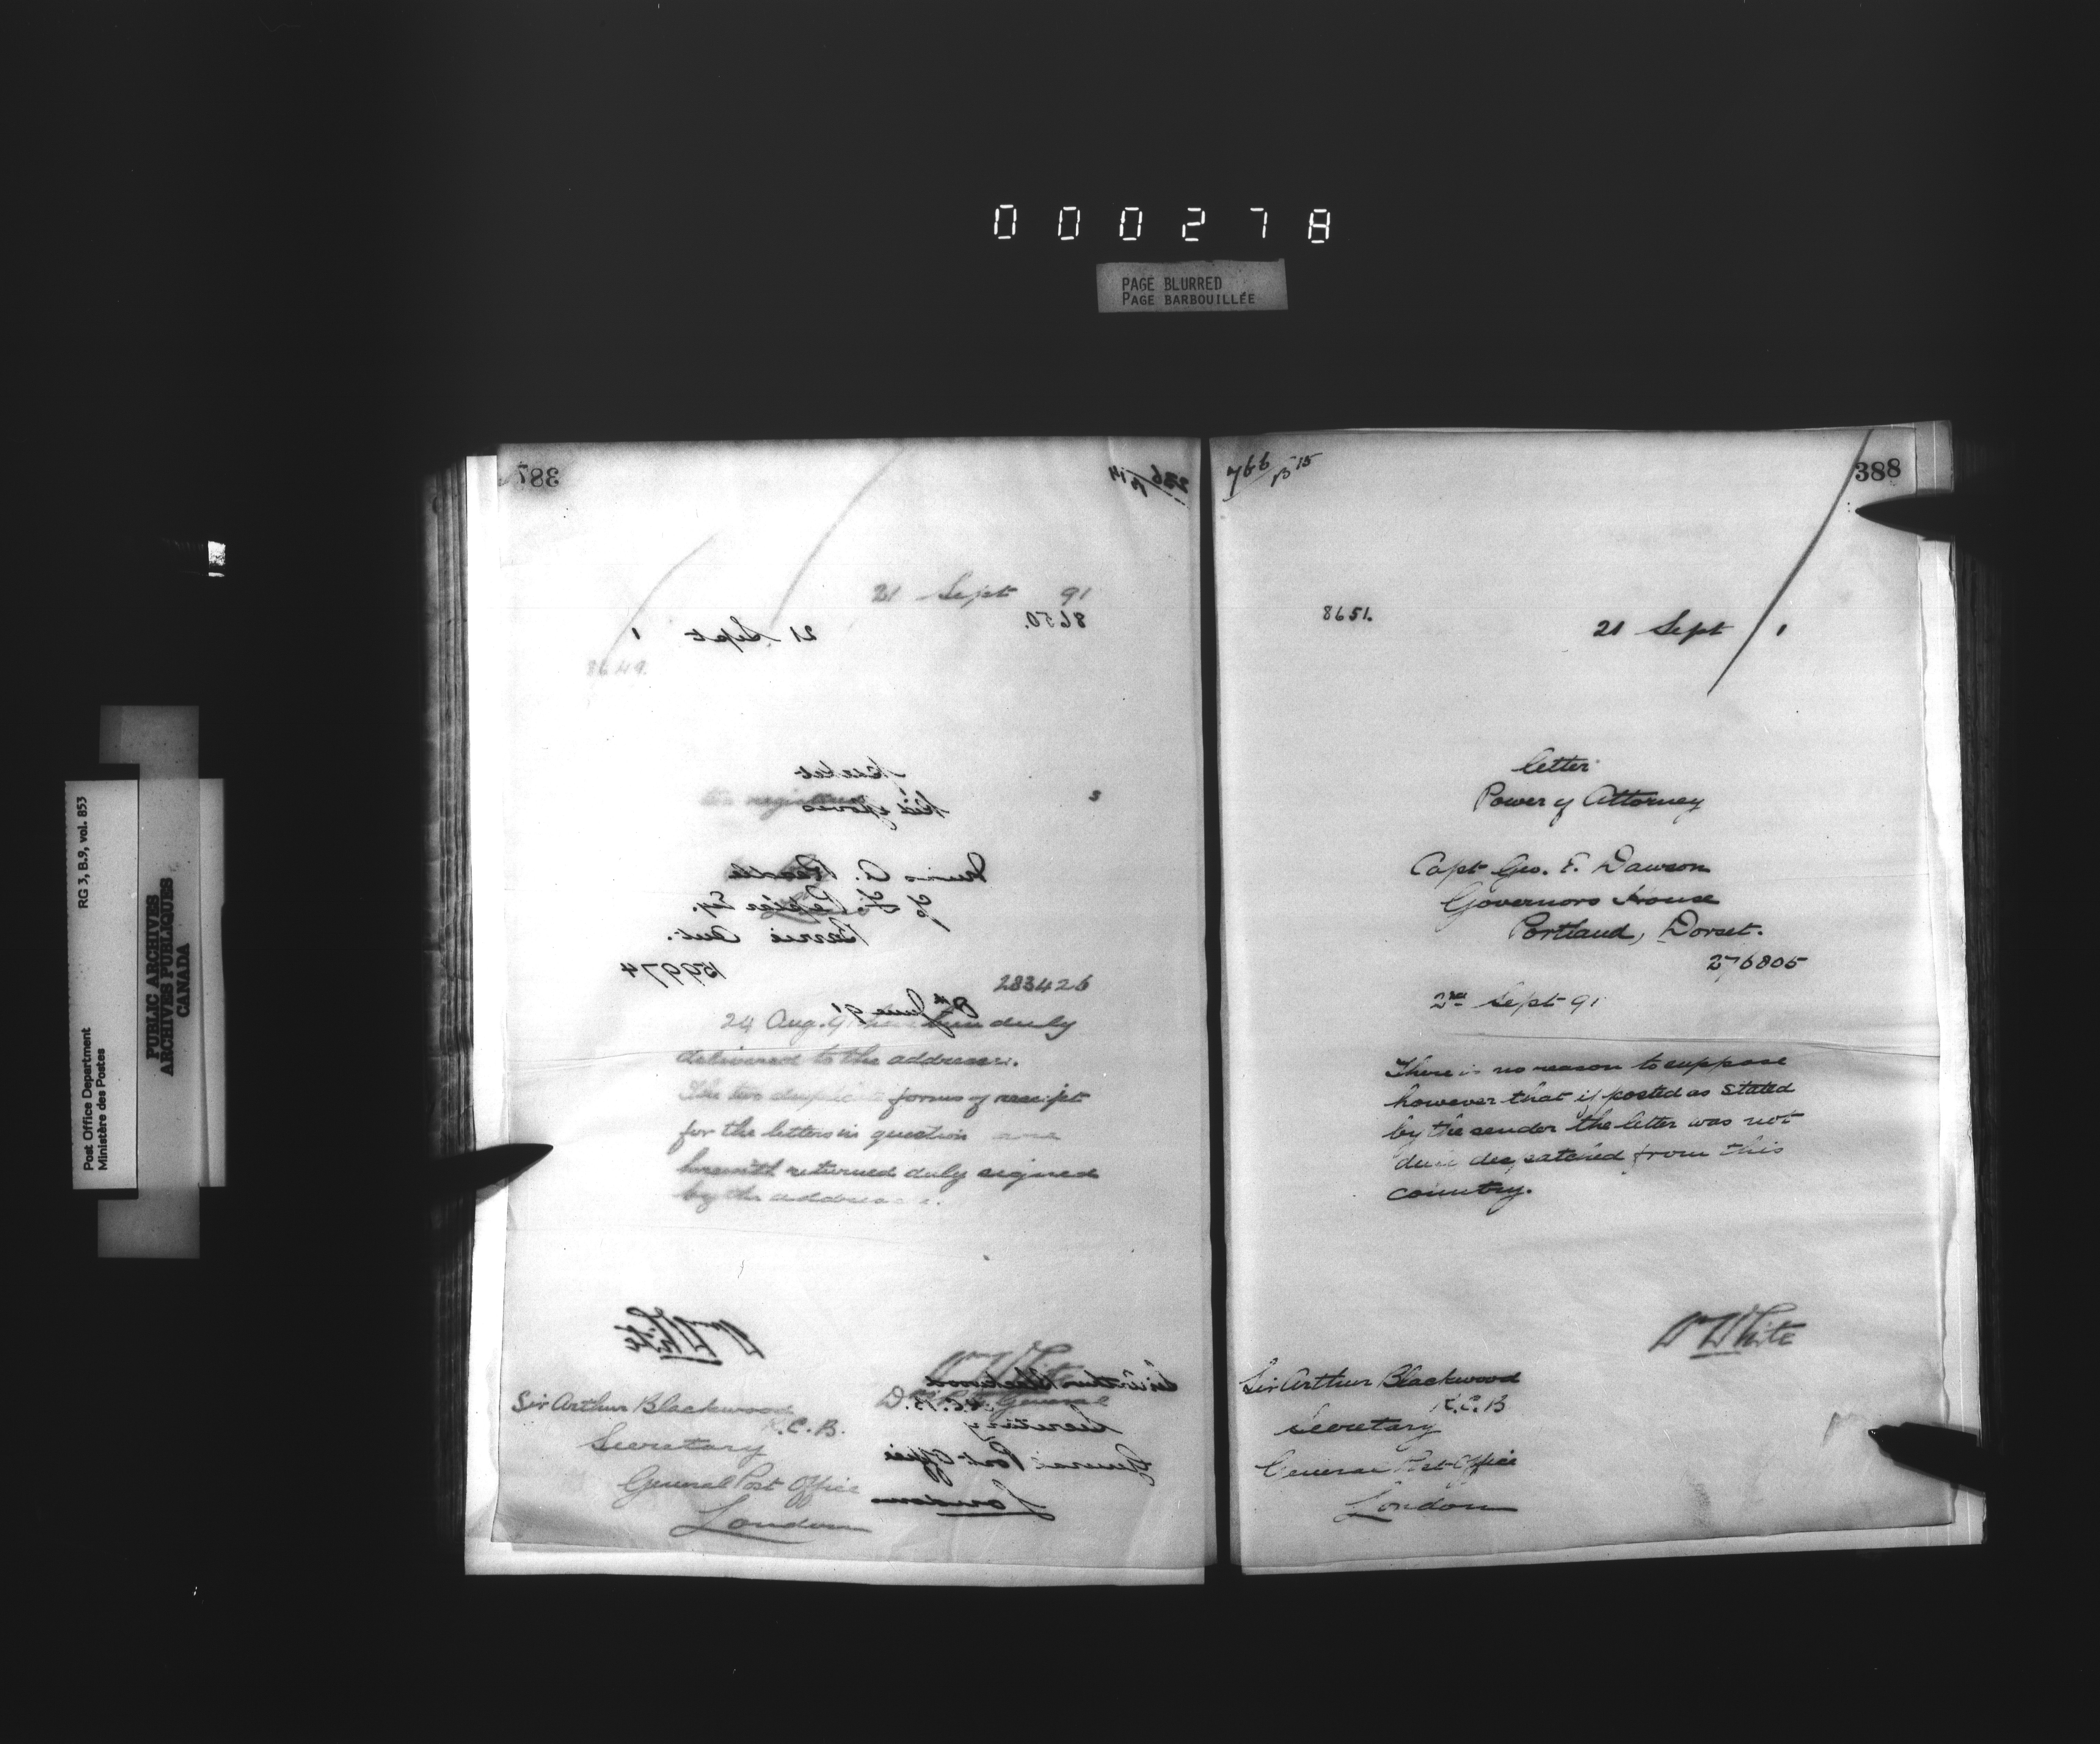 000278
PAGE BLURRED
PAGE BARBOUILLÉE
RG 3, B.9, vol. 853
Post Office Department
Ministère des Postes
PUBLIC ARCHIVES
ARCHIVES PUBLIQUES
CANADA
387
21 Sept 91
8650.
21 Sept 1
8649.
Kid gloves
Barrie Ont.
159974
283426
8th June 91
24 Aug. 91 duly
delivered to the addressee.
The two forms of receipt
for the letters in question are
herewith returned duly signed
by the
Wm White
Wm White
Sir Arthur Blackwood
K.C.B.
Secretary
General Post Office
London
Sir Arthur Blackwood
K.C.B.
Secretary
General Post Office
London
766/B 15
388
8651.
21 Sept 1
letter
Power of Attorney
Capt Geo. E. Dawson
Governors House
Portland, Dorset.
276805
2nd Sept 91
There is no reason to suppose
however that if posted as stated
by the sender the letter was not
duly despatched from this
country.
Wm White
Sir Arthur Blackwood
K.C.B
Secretary
General Post Office
London